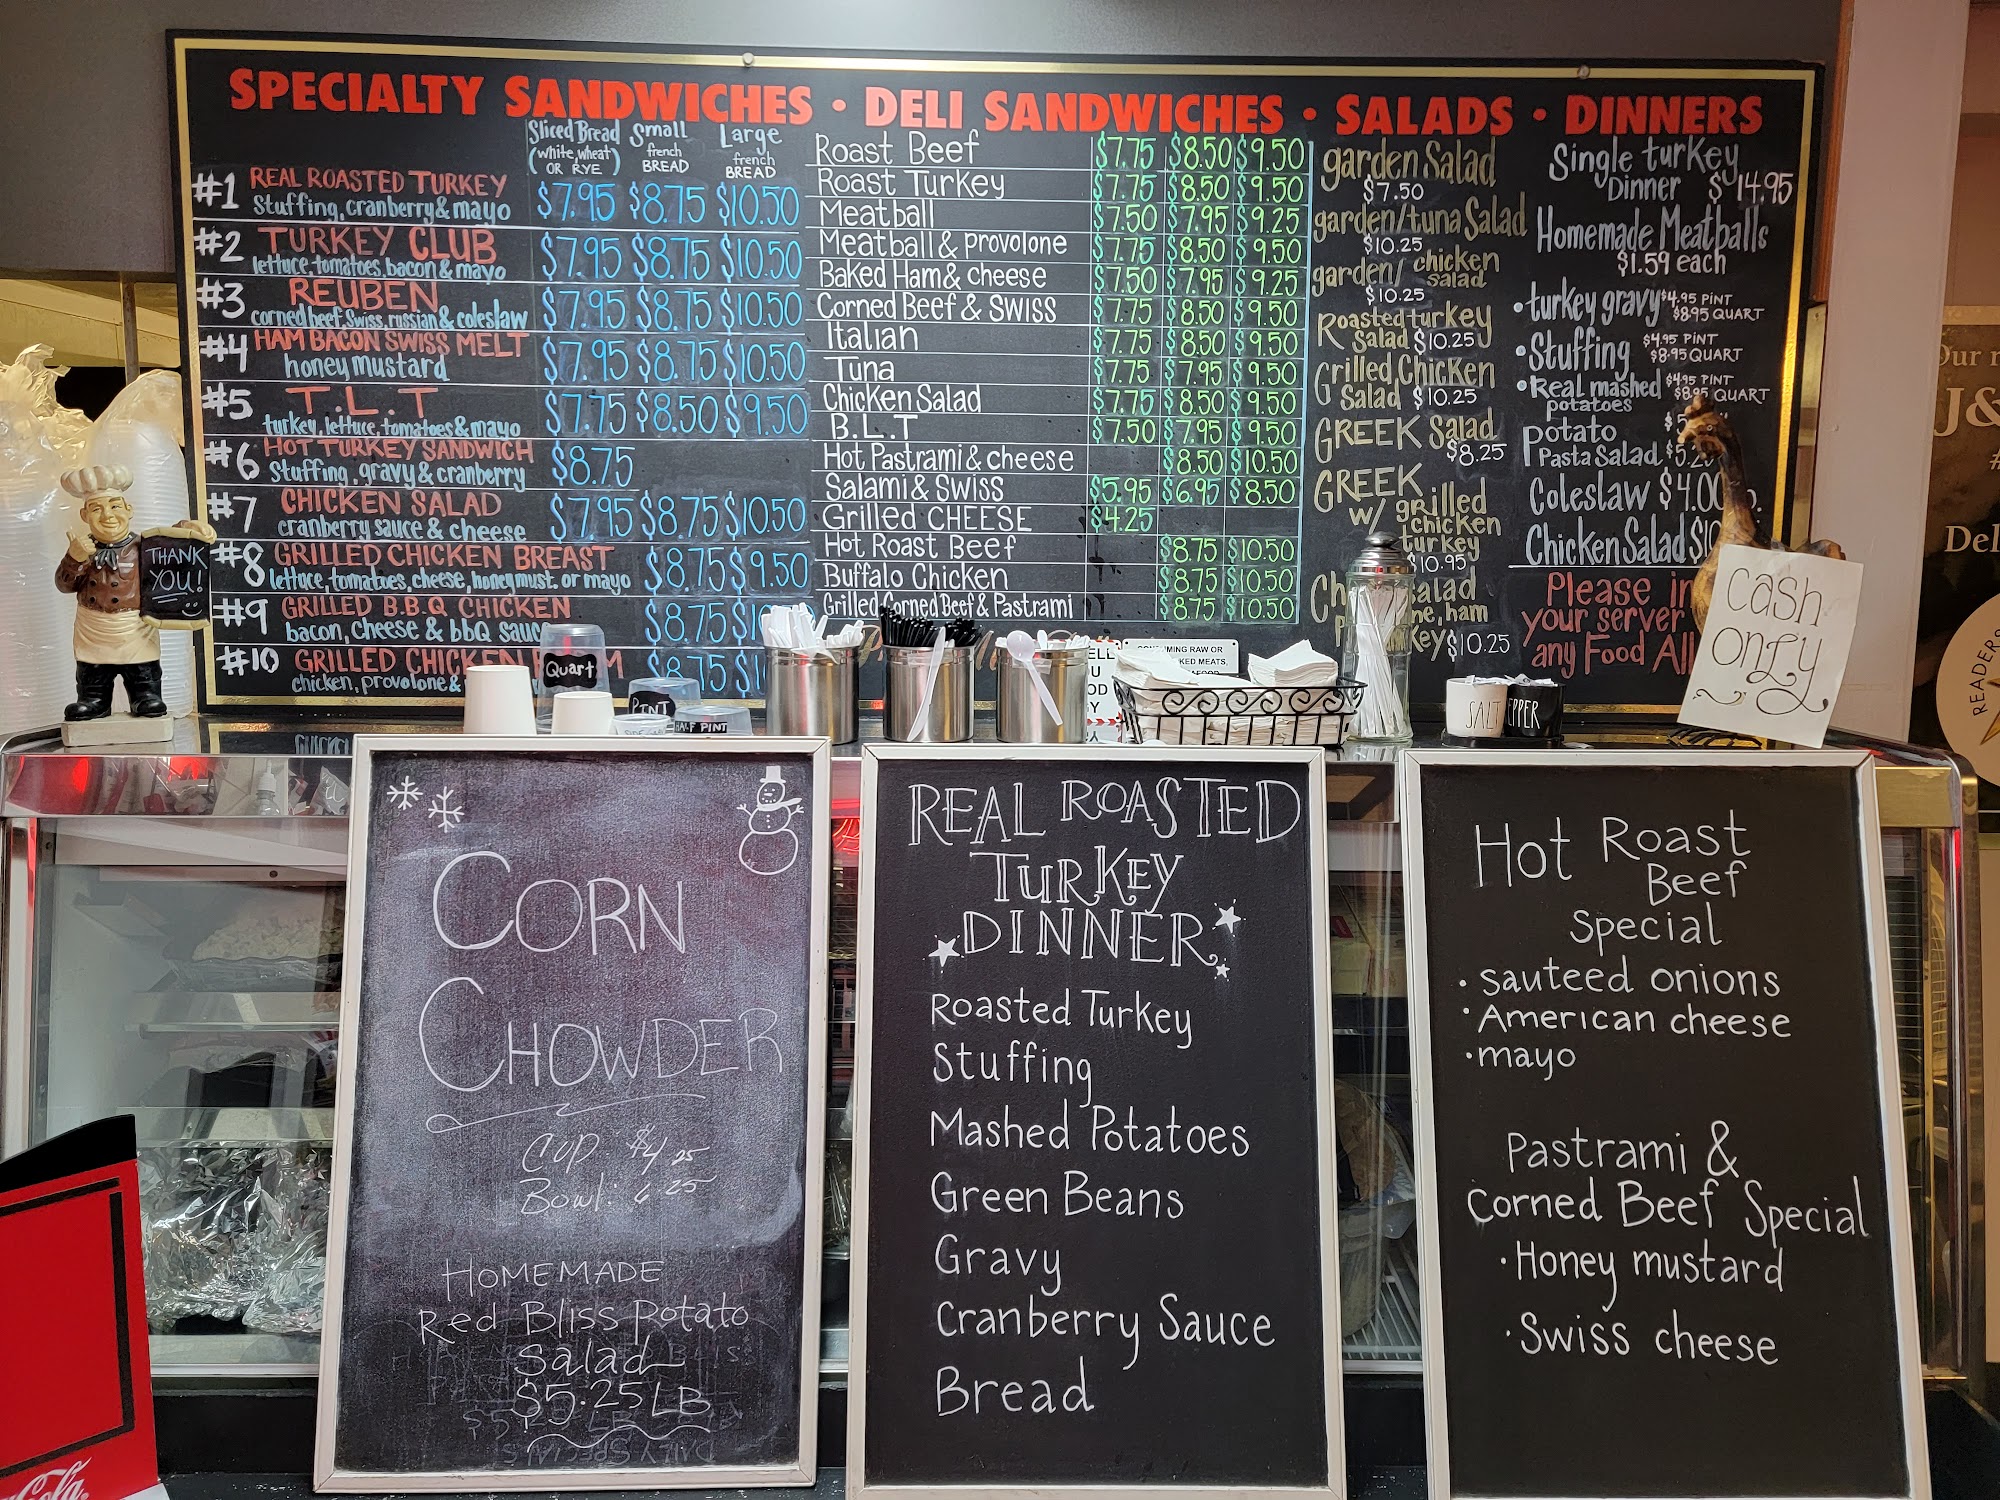 SPECIALTY SANDWICHES • DELI SANDWICHES • SALADS • DINNERS
Sliced Bread
(white, wheat)
OR RYE
Small
french
BREAD
Large
french
BREAD
#1 REAL ROASTED TURKEY
Stuffing, cranberry & mayo $7.95 $8.75 $10.50
#2 TURKEY CLUB
lettuce, tomatoes, bacon & mayo $7.95 $8.75 $10.50
#3 REUBEN
corned beef, Swiss, russian & coleslaw $7.95 $8.75 $10.50
#4 HAM BACON SWISS MELT
honey mustard $7.95 $8.75 $10.50
#5 T.L.T
turkey, lettuce, tomatoes & mayo $7.75 $8.50 $9.50
#6 HOT TURKEY SANDWICH
Stuffing, gravy & cranberry $8.75
#7 CHICKEN SALAD
cranberry sauce & cheese $7.95 $8.75 $10.50
#8 GRILLED CHICKEN BREAST
lettuce, tomatoes, cheese, honey must. or mayo $8.75 $9.50
#9 GRILLED B.B.Q CHICKEN
bacon, cheese & bbQ sauc $8.75 $10
#10 GRILLED CHICKEN
chicken, provolone & $8.75 $10
Roast Beef $7.75 $8.50 $9.50
Roast Turkey $7.75 $8.50 $9.50
Meatball $7.50 $7.95 $9.25
Meatball & provolone $7.75 $8.50 $9.50
Baked Ham & cheese $7.50 $7.95 $9.25
Corned Beef & SWISS $7.75 $8.50 $9.50
Italian $7.75 $8.50 $9.50
Tuna $7.75 $7.95 $9.50
Chicken Salad $7.75 $8.50 $9.50
B.L.T $7.50 $7.95 $9.50
Hot Pastrami & cheese $8.50 $10.50
Salami & SWISS $5.95 $6.95 $8.50
Grilled CHEESE $4.25
Hot Roast Beef $8.75 $10.50
Buffalo Chicken $8.75 $10.50
Grilled Corned Beef & Pastrami $8.75 $10.50
garden Salad
$7.50
garden/tuna Salad
$10.25
garden/ chicken
salad
$10.25
Roasted turkey
Salad $10.25
Grilled Chicken
Salad $10.25
GREEK Salad
$8.25
GREEK
w/ grilled
chicken
turkey
$10.95
Ch alad
ne, ham
key $10.25
Single turkey
Dinner $14.95
Homemade Meatballs
$1.59 each
• turkey gravy $4.95 PINT
$8.95 QUART
• Stuffing $4.95 PINT
$8.95 QUART
• Real mashed $4.95 PINT
potatoes $8.95 QUART
Potato
Pasta Salad $5.2
Coleslaw $4.00
Chicken Salad $10
Please in
your server
any Food All
THANK
YOU!
Quart
PINT
HALF PINT
SALT
EPPER
cash
only
Our
J&
Del
READERS
CORN
CHOWDER
CUP: $4.25
Bowl: 6.25
HOMEMADE
Red Bliss Potato
Salad
$5.25 LB
REAL ROASTED
TURKEY
DINNER
Roasted Turkey
Stuffing
Mashed Potatoes
Green Beans
Gravy
Cranberry Sauce
Bread
Hot Roast
Beef
Special
• Sauteed onions
• American cheese
• mayo
Pastrami &
Corned Beef Special
• Honey mustard
• Swiss cheese
Cola